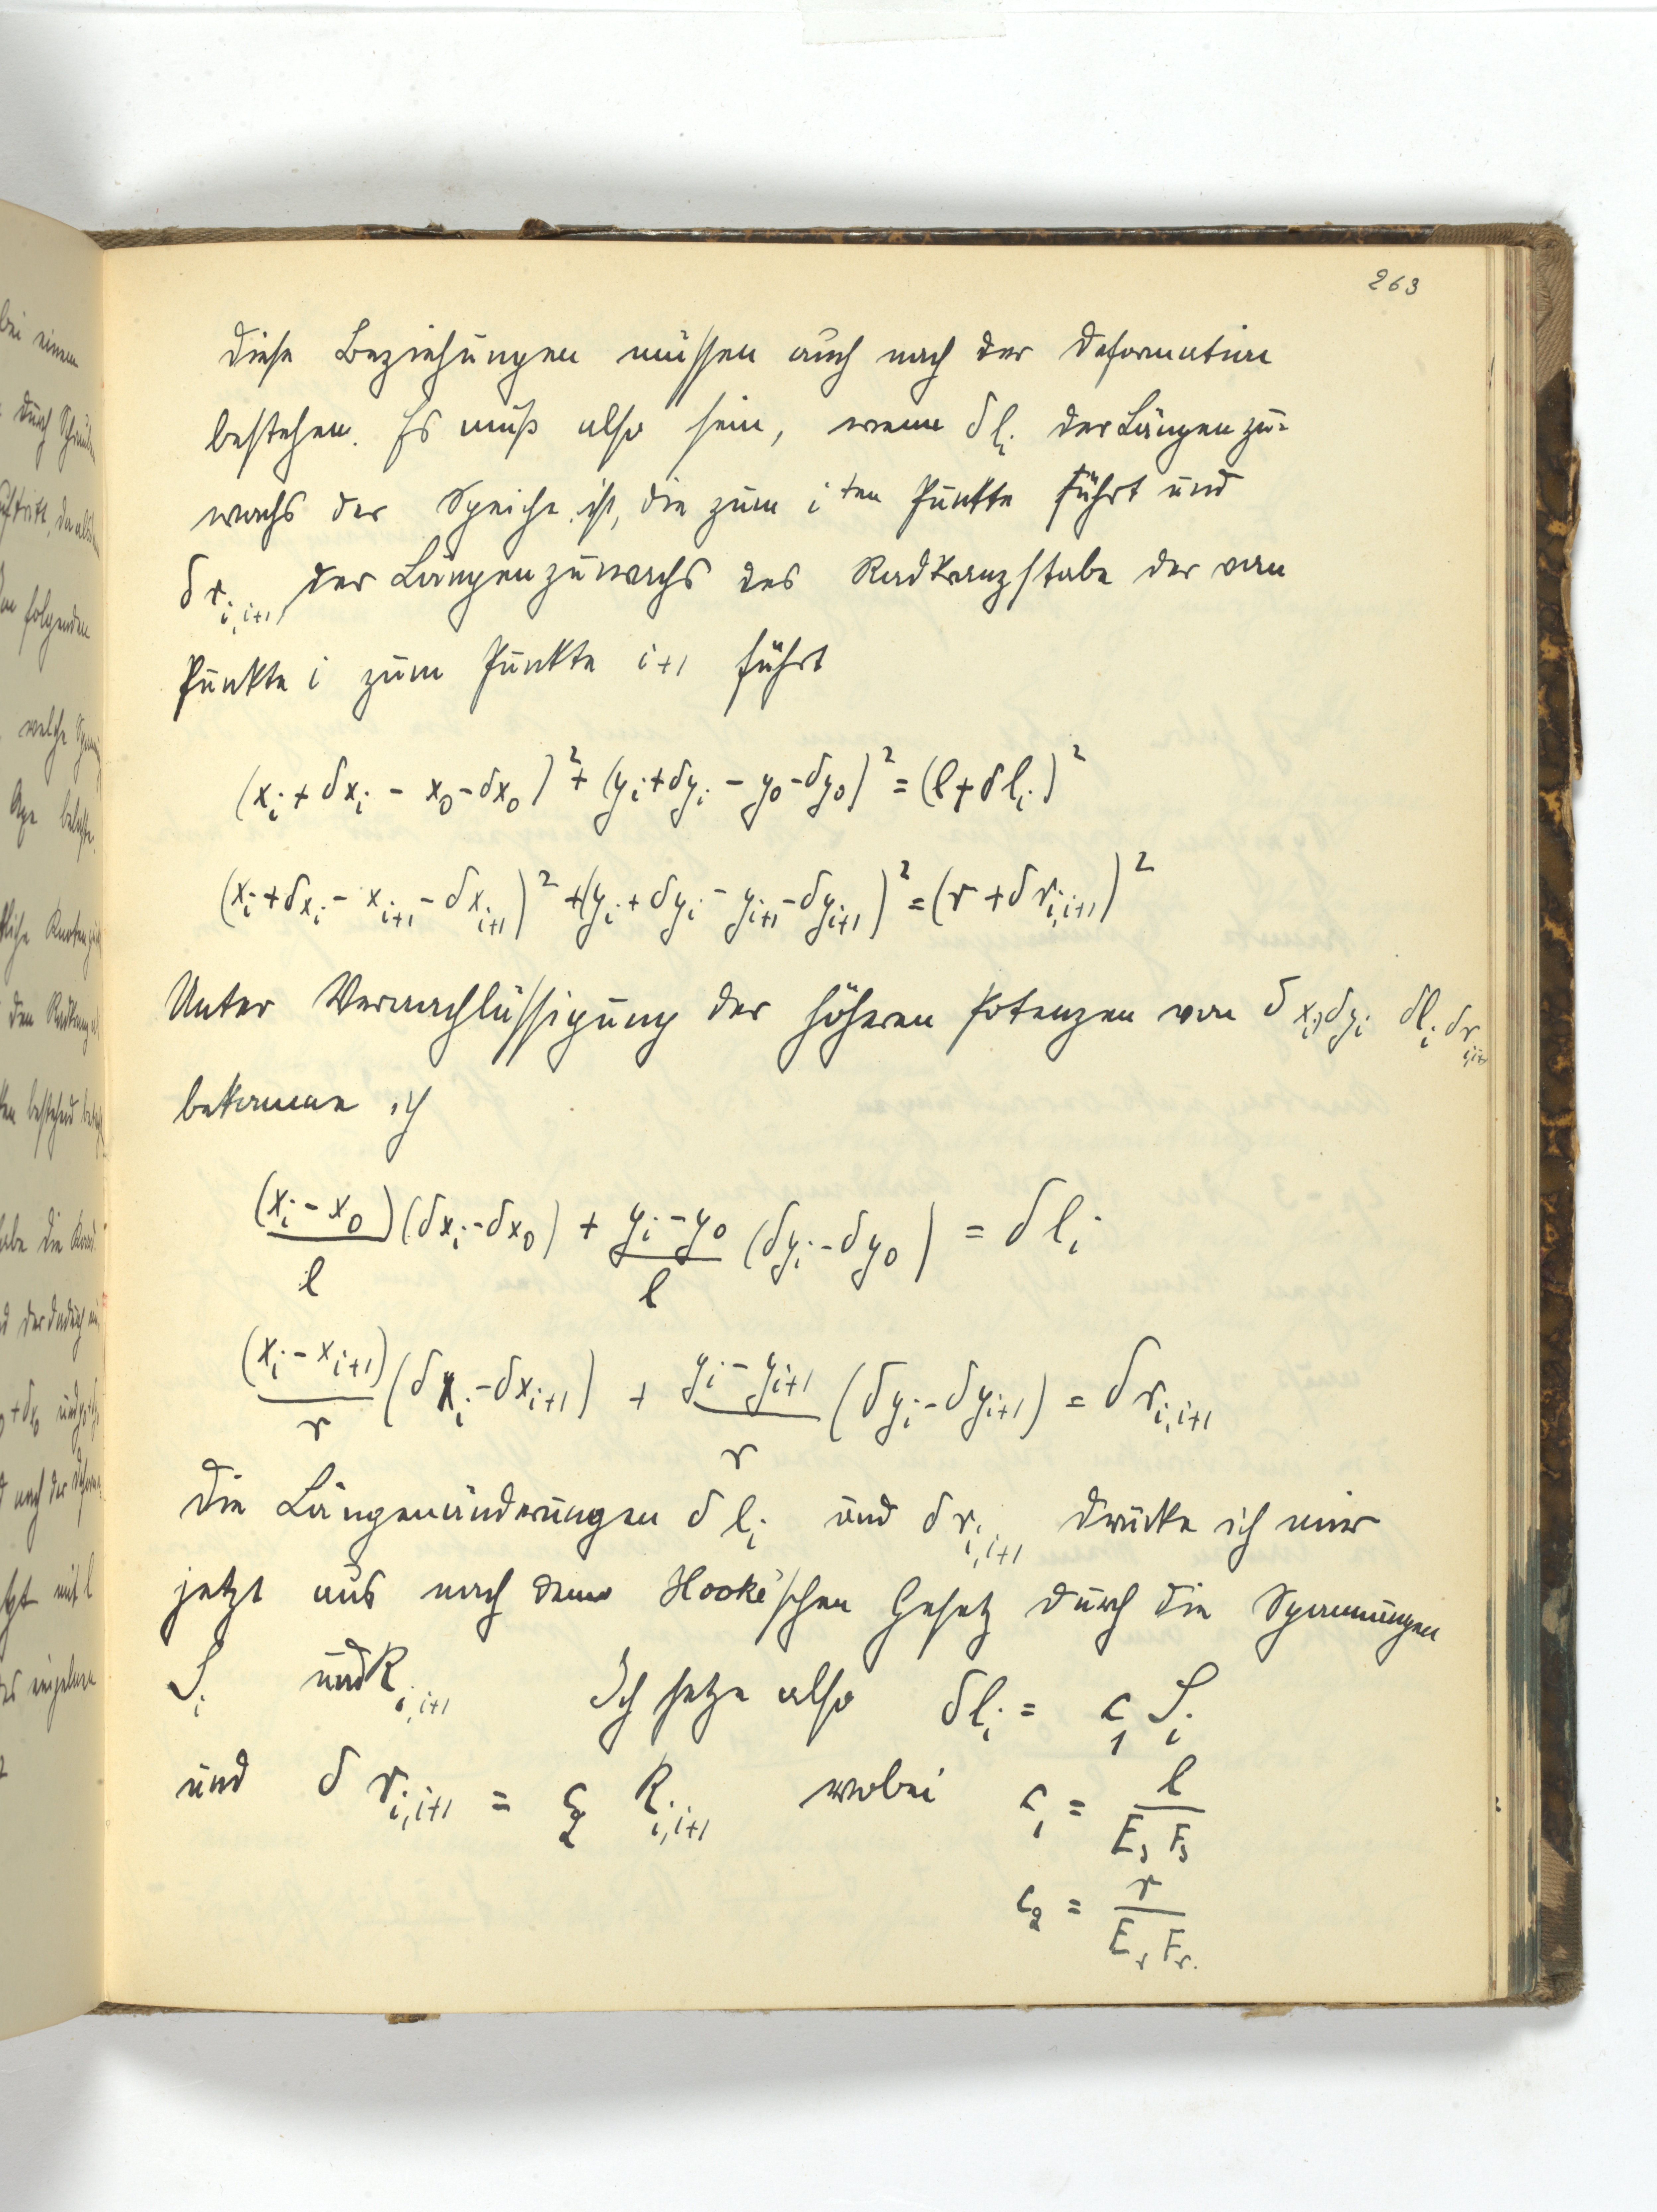 263
diese Beziehungen müssen auch nach der Deformation
bestehen. Es muß also sein, wenn δl_i der Längenzu=
wachs der Speiche ist, die zum i ten Punkte führt und
δr_{i,i+1} der Längenzuwachs des Radkranzstabe der von
Punkte i zum Punkte i+1 führt
(x_i + δx_i - x_0 - δx_0)² + (y_i + δy_i - y_0 - δy_0)² = (l + δl_i)²
(x_i + δx_i - x_{i+1} - δx_{i+1})² + (y_i + δy_i - y_{i+1} - δy_{i+1})² = (r + δr_{i,i+1})²
Unter Vernachlässigung der höheren Potenzen von δx_i, δy_i δl_i δr_{i,i+1}
bekomme ich
(x_i - x_0)/l (δx_i - δx_0) + y_i - y_0/l (δy_i - δy_0) = δl_i
(x_i - x_{i+1})/r (δx_i - δx_{i+1}) + y_i - y_{i+1}/r (δy_i - δy_{i+1}) = δr_{i,i+1}
Die Längenänderungen δl_i und δr_{i,i+1} drücke ich mir
jetzt aus nach dem Hooke'schen Gesetz durch die Spannungen
S_i und R_{i,i+1} Ich setze also δl_i = c_1 S_i
und δr_{i,i+1} = c_2 R_{i,i+1} wobei c_1 = l/E_s F_s
c_2 = r/E_r F_r.
bei einem
durch
folgenden
welche
den
bestehend
nach der
mit l